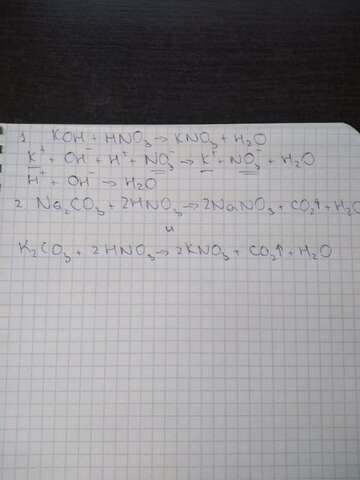 1. KOH + HNO₃ → KNO₃ + H₂O
K⁺ + OH⁻ + H⁺ + NO₃⁻ → K⁺ + NO₃⁻ + H₂O
H⁺ + OH⁻ → H₂O
2. Na₂CO₃ + 2HNO₃ → 2NaNO₃ + CO₂↑ + H₂O
и
K₂CO₃ + 2HNO₃ → 2KNO₃ + CO₂↑ + H₂O